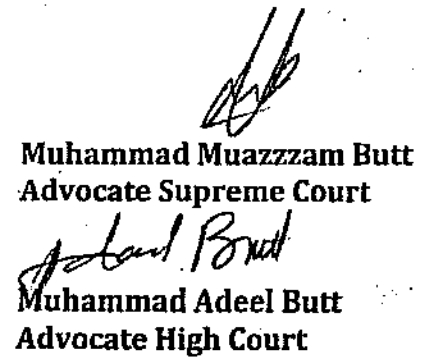 Muhammad Muazzzam Butt
Advocate Supreme Court
Butt
Muhammad Adeel Butt
Advocate High Court